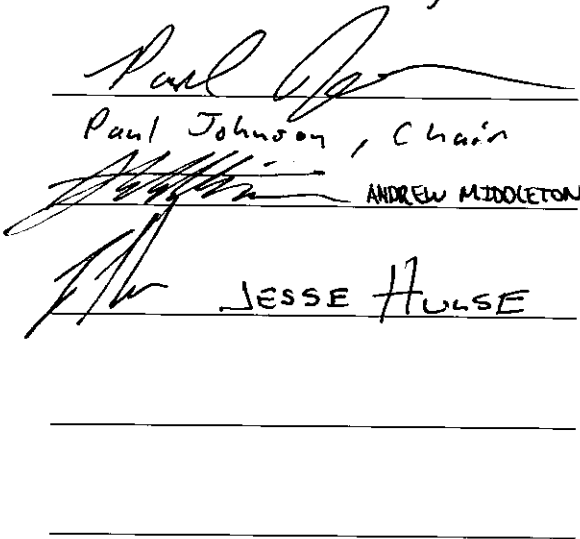 Paul Johnson, Chair
ANDREW MIDDLETON
JESSE HULSE